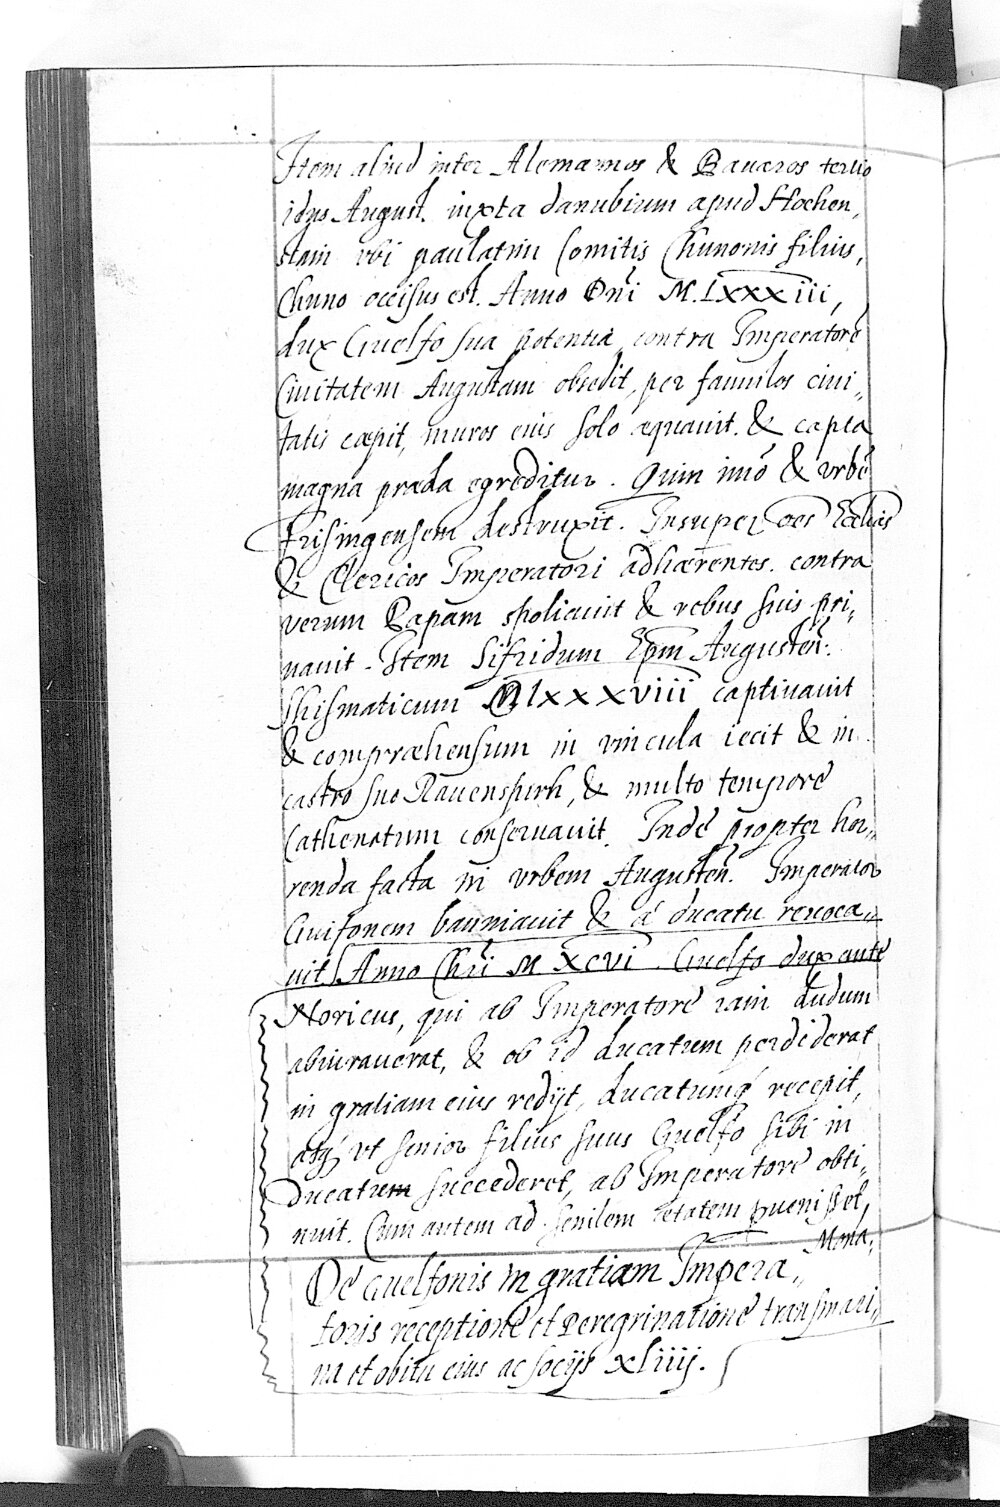 Item aliud inter Alemannos & Bavaros tertio
idus August. iuxta danubium apud Hochen,
stain vbi paulatim Comitis Chunonis filius,
Chuno occisus est. Anno Dnī M.LXXXIII,
dux Guelfo sua potentia contra Imperatorē
Ciuitatem Augustam obsedit, per famulos ciui,
tatis cœpit, muros eius solo æquauit. & capta
magna præda egreditur. Quin imō & vrbē
Frisingensem destruxit. Insuper oēs Ecclias
& Clericos Imperatori adhærentes. contra
verum Papam spoliauit & rebus suis pri,
uauit. Item Sifridum Epm̄ Augustēn.
Shismaticum MlXXXVIII captiuauit
& compræhensum in vincula iecit & in
castro suo Rauenspurh, & multo tempore
Cathenatum conseruauit. Inde propter hor,,
renda facta in vrbem Augustēn. Imperator
Guifonem banniauit & a' ducatu reuoca,,
uit. Anno Chrī M XCVI. Guelfo dux ante
Noricus, qui ab Imperatore iam dudum
abiurauerat, & ob id ducatum perdiderat
in gratiam eius redijt, ducatumq́ recepit,
atq́ vt senior filius suus Guelfo sibi in
Ducatum succederet, ab Imperatore obti,
nuit. Cum autem ad senilem ætatem puenisset,
Mona,
De Guelfonis in gratiam Impera,,
toris receptione et Peregrinatione transmari,,
na et obitu eius ac socijs xliiij.